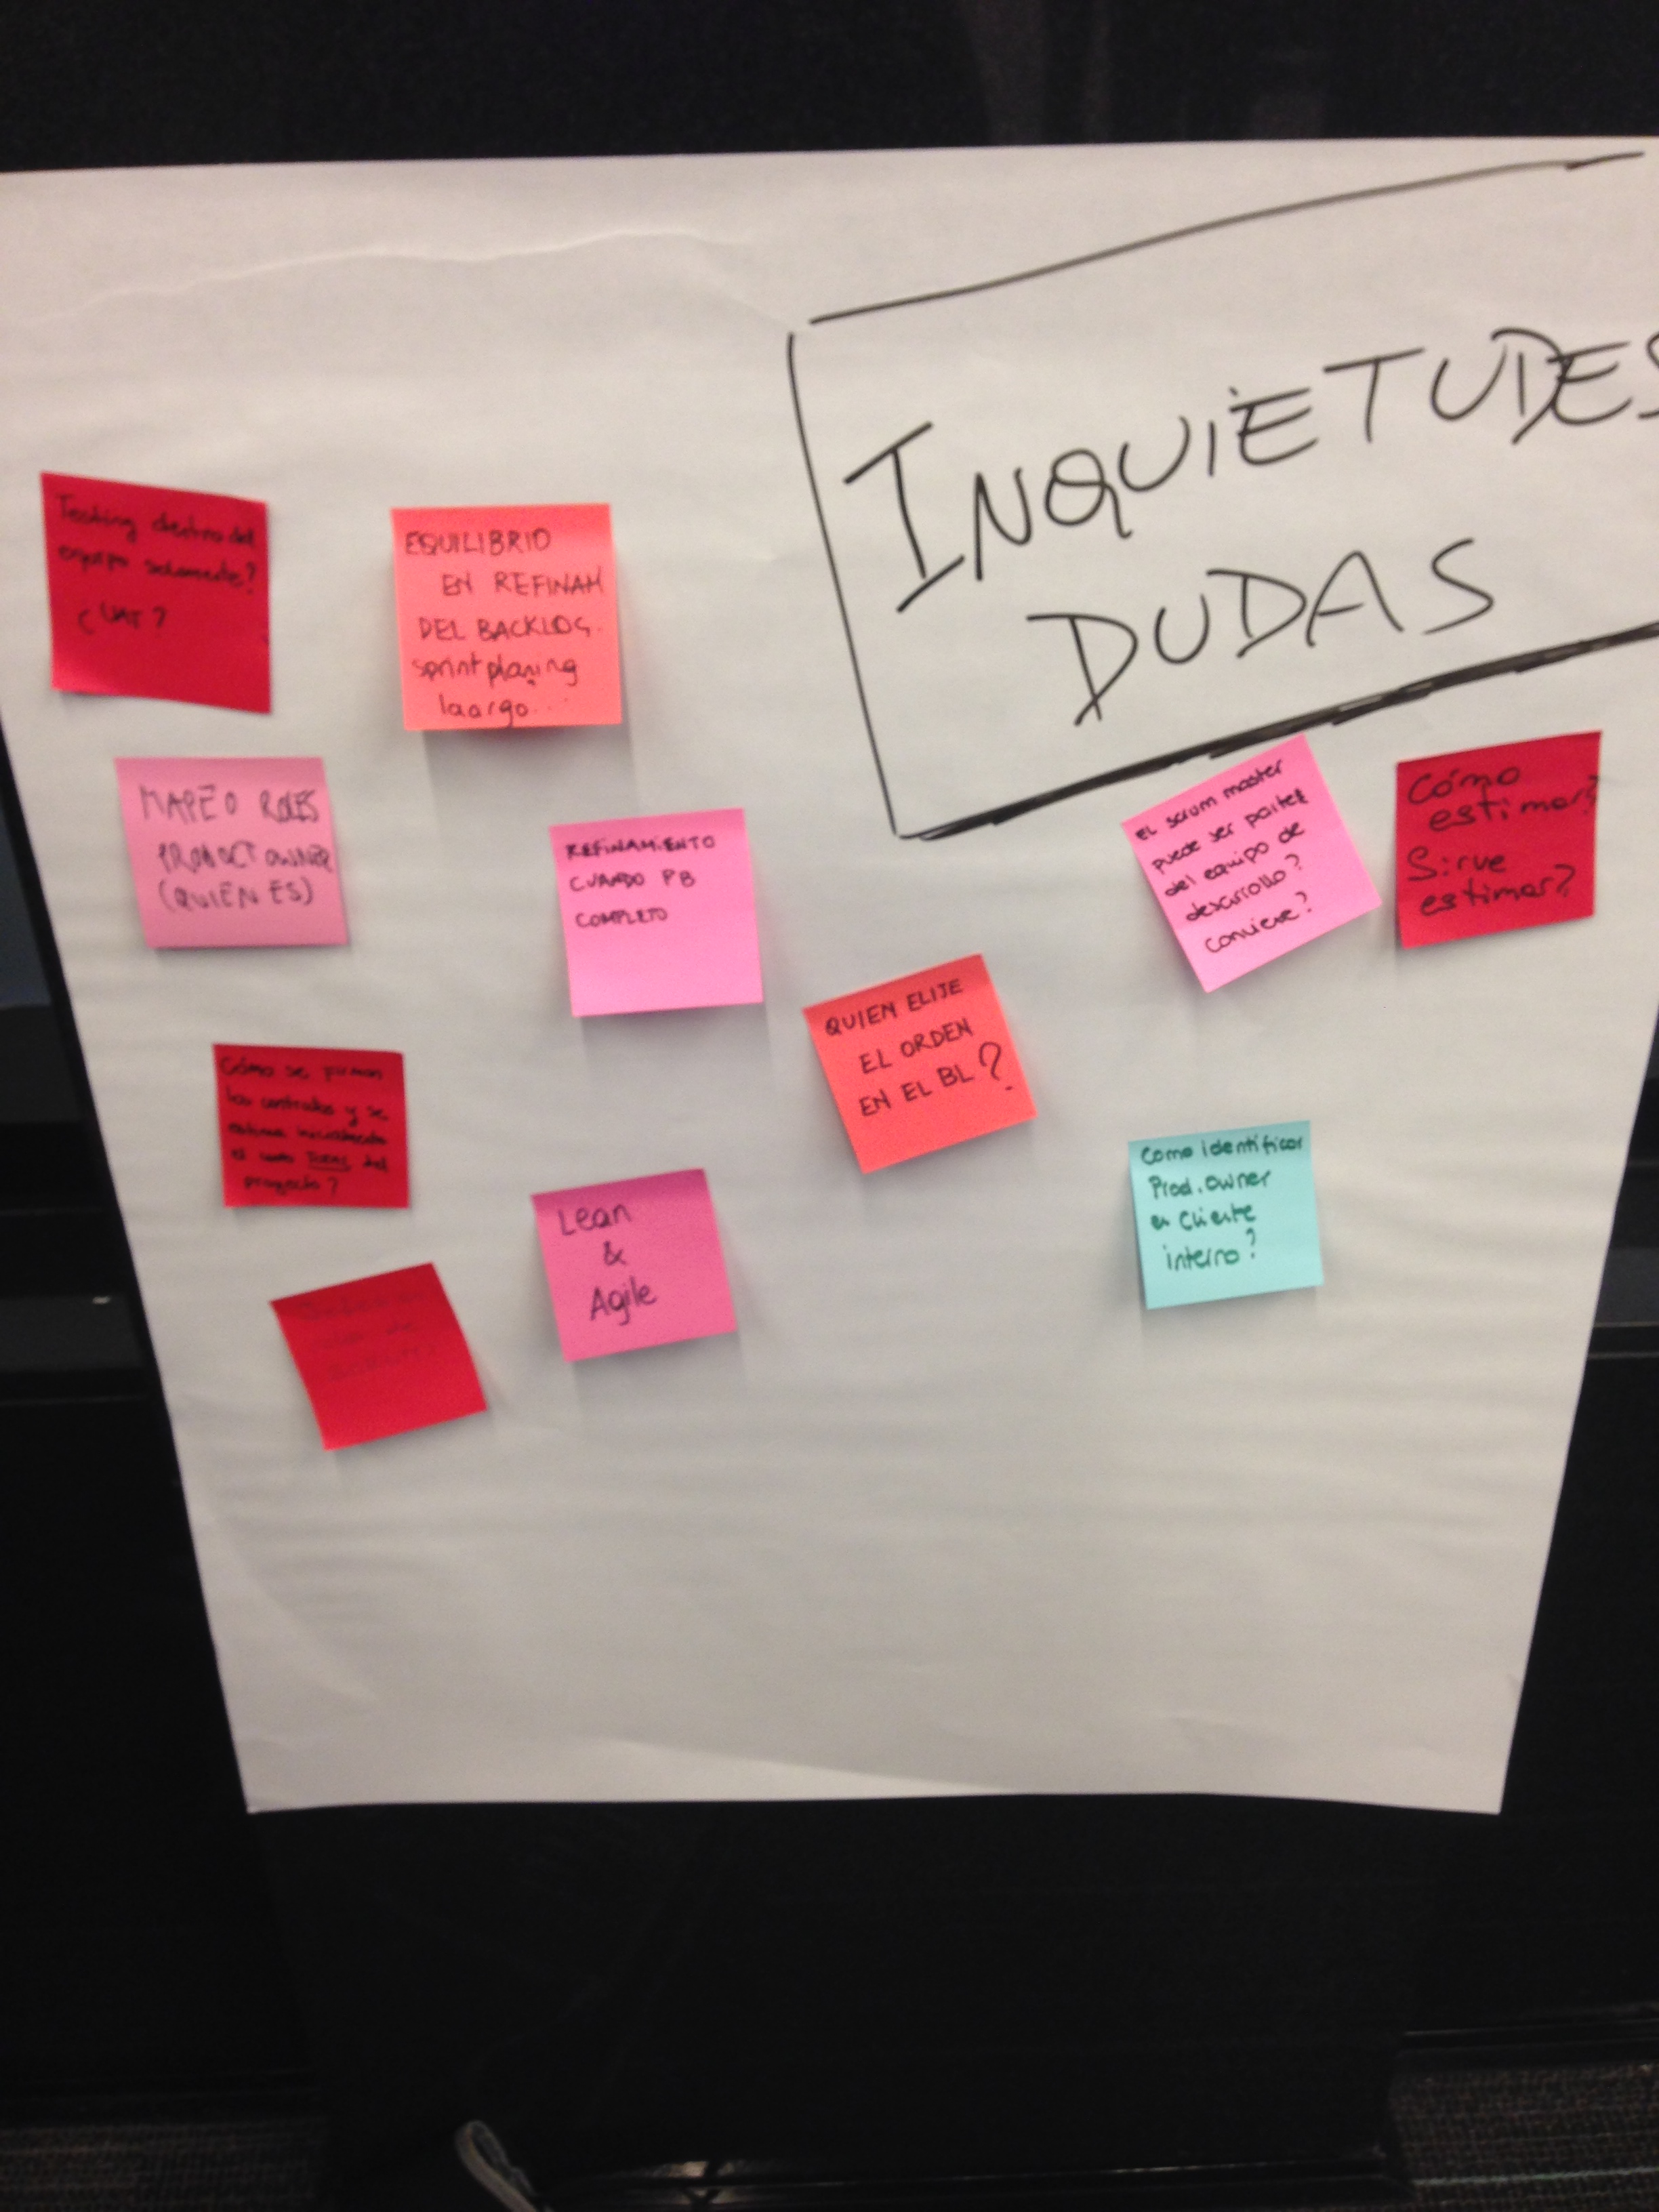 INQUIETUDES
DUDAS
Testing dentro del
equipo solamente?
(UAT?
EQUILIBRIO
EN REFINAM
DEL BACKLOG.
sprint planing
laargo...
MAPEO ROLES
PRODUCT OWNER
(QUIEN ES)
REFINAMIENTO
CUANDO PB
COMPLETO
El scrum master
puede ser parte
del equipo de
desarrollo?
conviene?
Cómo
estimar?
Sirve
estimar?
QUIEN ELIJE
EL ORDEN
EN EL BL?
Cómo se firman
los contratos y se
estima
el costo TOTAL del
proyecto?
Como identificar
Prod. owner
en cliente
interno?
Lean
&
Agile
de